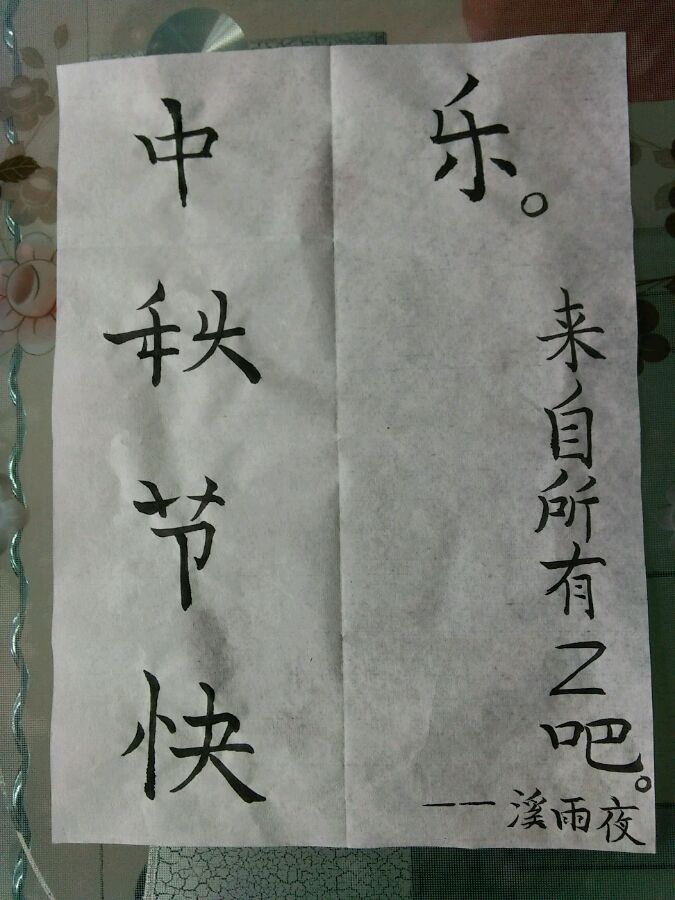 中秋节快
乐。
来自所有Z吧。
——溪雨夜